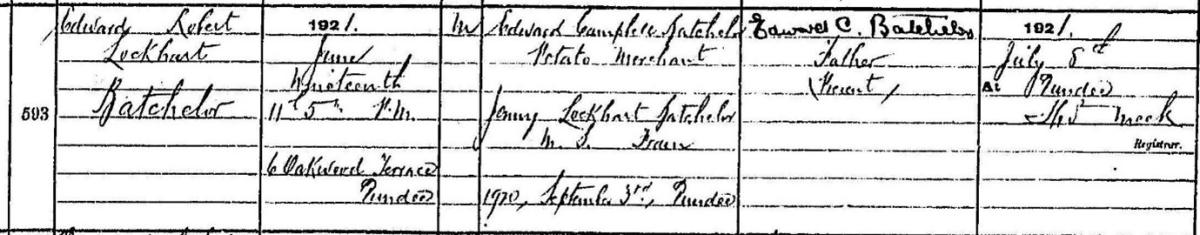 593
Edward Robert
Lockhart
Batchelor
1921.
June
Nineteenth
11h 5m P.M.
6 Oakwood Terrace
Dundee
M
Edward Campbell Batchelor
Potato Merchant
Jenny Lockhart Batchelor
M. S.
1920, September 3rd, Dundee
Edward C. Batchelor
Father
(Present)
1921.
July 8th
At Dundee
Meek
Registrar.